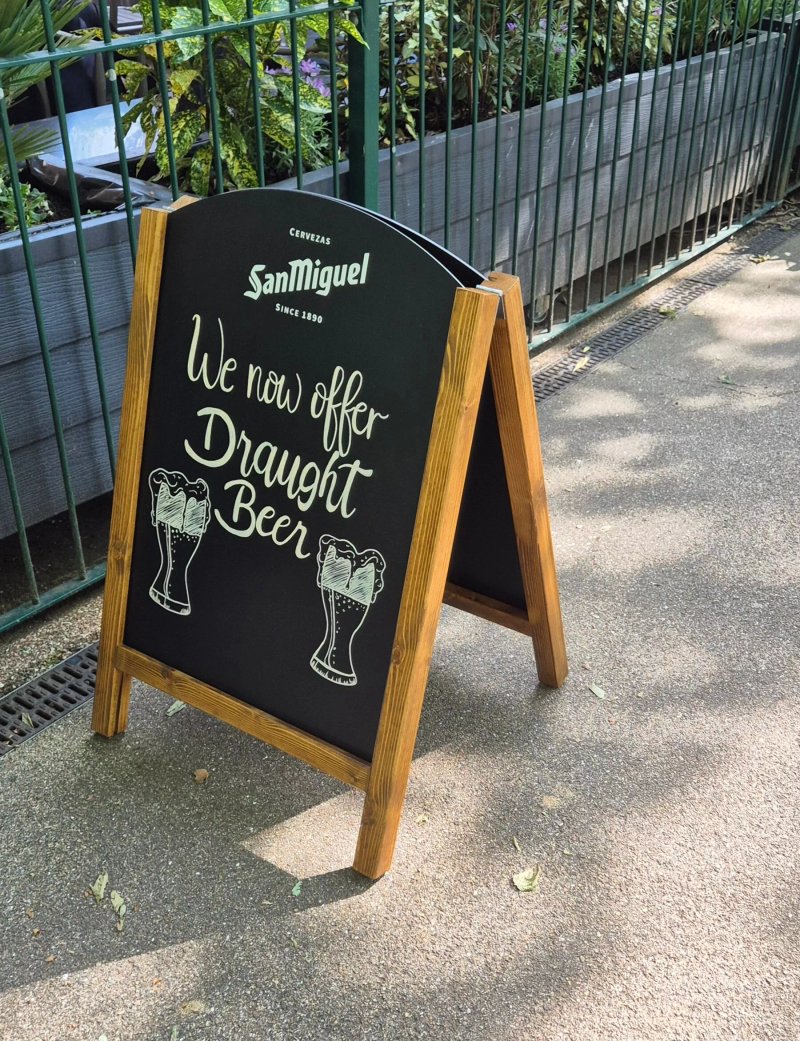 Cervezas
SanMiguel
Since 1890
We now offer
Draught
Beer